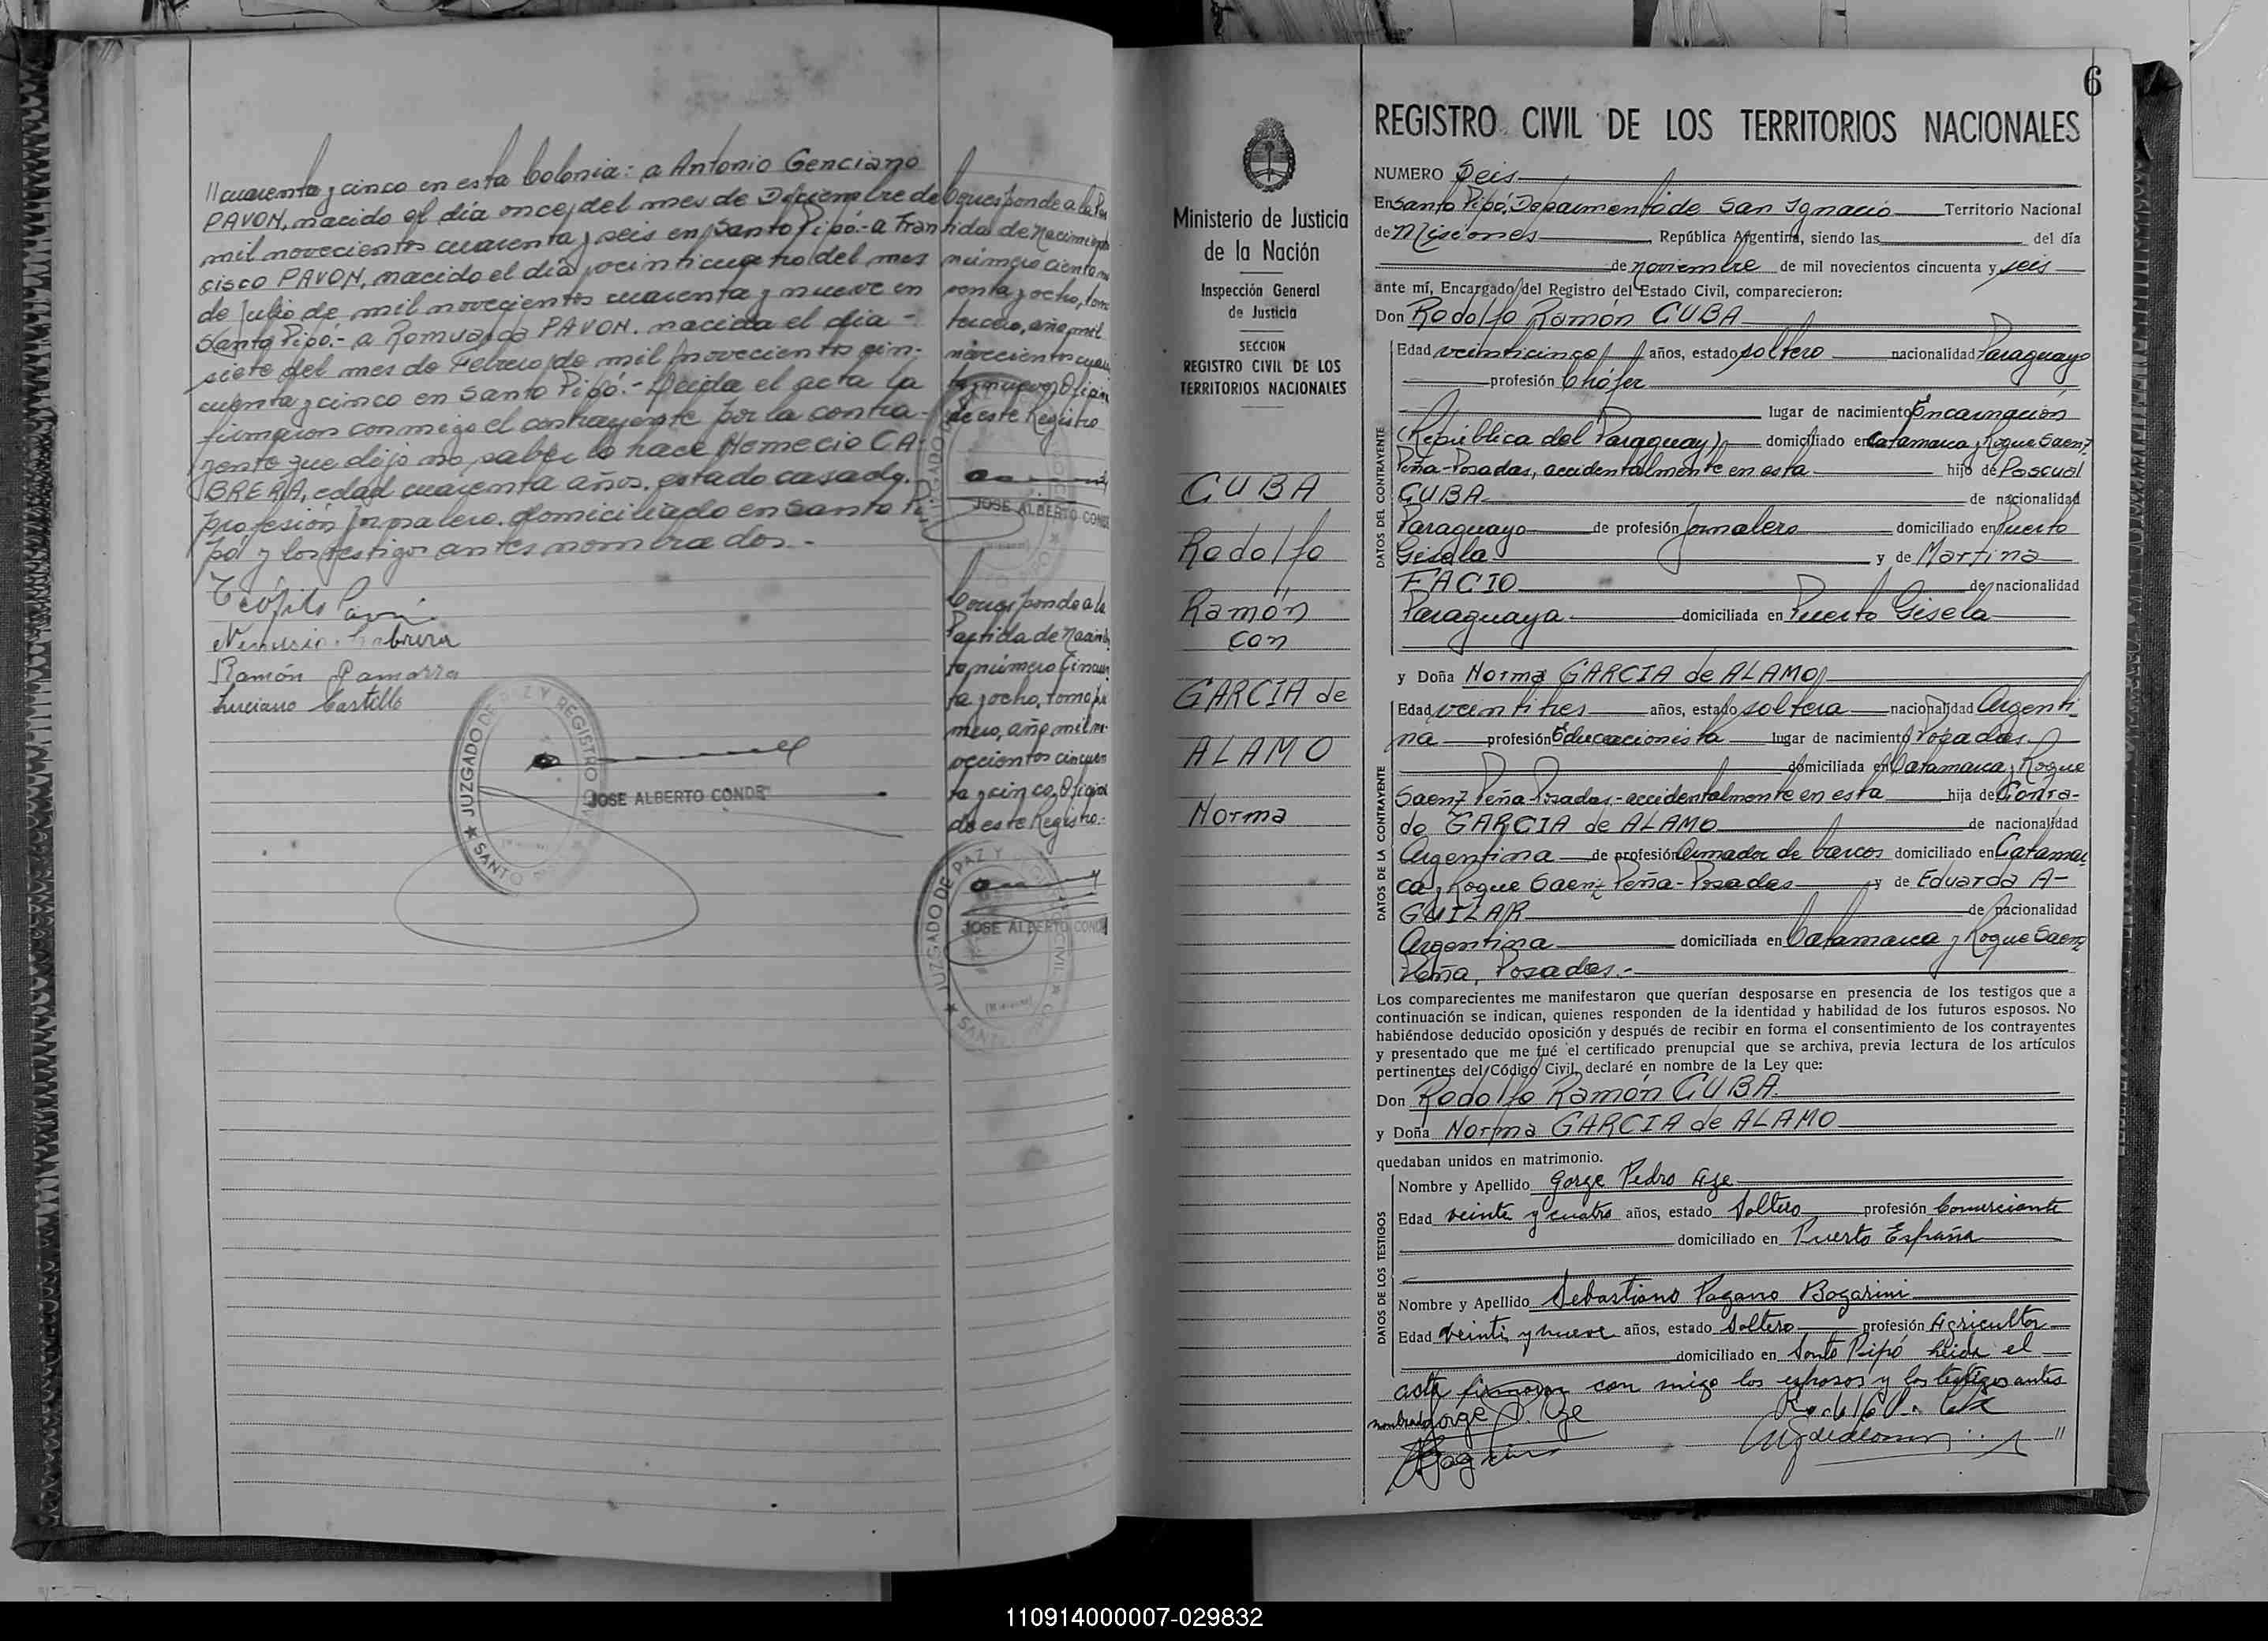 // cuarenta y cinco en esta Colonia: a Antonio Genciano
PAVON, nacido el día once del mes de Diciembre de
mil novecientos cuarenta y seis en Santo Pipó.- a Fran
cisco PAVON, nacido el día veinticuatro del mes
de Julio de mil novecientos cuarenta y nueve en
Santo Pipó.- a Romualda PAVON. nacida el día -
siete del mes de Febrero de mil novecientos cin-
cuenta y cinco en Santo Pipó.- Leida el acta la
firmaron conmigo el contrayente por la contra-
yente que dijo no saber lo hace Nemecio CA-
BRERA, edad cuarenta años. estado casado.
profesión jornalero. domiciliado en Santo Pi
pó y los testigos antes nombrados.-
Teófilo Pavón
Nemesio Cabrera
Ramón Gamarra
Luciano Castillo
JUZGADO DE PAZ Y REGISTRO CIVIL
SANTO
JOSE ALBERTO CONDE
Corresponde a la Par
tida de Nacimiento
número ciento no
venta y ocho, tomo
tercero, año mil
novecientos cuaren
ta y nueve, Oficina
de este Registro
JOSE ALBERTO CONDE
Corresponde a la
Partida de Nacimien
to número Cincuen
ta y ocho, tomo pri
mero, año mil no-
vecientos cincuen
ta y cinco, Oficina
de este Registro.-
JUZGADO DE PAZ Y
CIVIL
SANTO
JOSE ALBERTO CONDE
6
Ministerio de Justicia
de la Nación
Inspección General
de Justicia
SECCION
REGISTRO CIVIL DE LOS
TERRITORIOS NACIONALES
CUBA
Rodolfo
Ramón
con
GARCIA de
ALAMO
Norma
REGISTRO CIVIL DE LOS TERRITORIOS NACIONALES
NUMERO Seis
En Santo Pipó, Departamento de San Ignacio Territorio Nacional
de Misiones República Argentina, siendo las del día
de noviembre de mil novecientos cincuenta y seis
ante mí, Encargado del Registro del Estado Civil, comparecieron:
Don Rodolfo Ramón CUBA
DATOS DEL CONTRAYENTE
Edad veinticinco años, estado soltero nacionalidad Paraguayo
profesión Chófer
lugar de nacimiento Encarnación
(República del Paraguay) domiciliado en Catamarca y Roque Saenz
Peña-Posadas, accidentalmente en esta hijo de Pascual
CUBA de nacionalidad
Paraguayo de profesión Jornalero domiciliado en Puerto
Gisela y de Martina
FACIO de nacionalidad
Paraguaya domiciliada en Puerto Gisela
y Doña Norma GARCIA de ALAMO
DATOS DE LA CONTRAYENTE
Edad veintitres años, estado soltera nacionalidad Argenti-
na profesión Educacionista lugar de nacimiento Posadas.
domiciliada en Catamarca y Roque
Saenz Peña Posadas-accidentalmente en esta hija de Conra-
do GARCIA de ALAMO de nacionalidad
Argentina de profesión Armador de barcos domiciliado en Catamar
ca y Roque Saenz Peña-Posadas y de Eduarda A-
GUILAR de nacionalidad
Argentina domiciliada en Catamarca y Roque Saenz
Peña, Posadas.-
Los comparecientes me manifestaron que querían desposarse en presencia de los testigos que a
continuación se indican, quienes responden de la identidad y habilidad de los futuros esposos. No
habiéndose deducido oposición y después de recibir en forma el consentimiento de los contrayentes
y presentado que me fué el certificado prenupcial que se archiva, previa lectura de los artículos
pertinentes del Código Civil, declaré en nombre de la Ley que:
Don Rodolfo Ramón CUBA.
y Doña Norma GARCIA de ALAMO
quedaban unidos en matrimonio.
DATOS DE LOS TESTIGOS
Nombre y Apellido Jorge Pedro Aze
Edad veinte y cuatro años, estado Soltero profesión Comerciante
domiciliado en Puerto España
Nombre y Apellido Sebastiano Pagano Bogarini
Edad veinti y nueve años, estado Soltero profesión Agricultor
domiciliado en Santo Pipó Leida el
acta firmaron con migo los esposos y los testigos antes
nombrados Jorge P. Aze
110914000007-029832